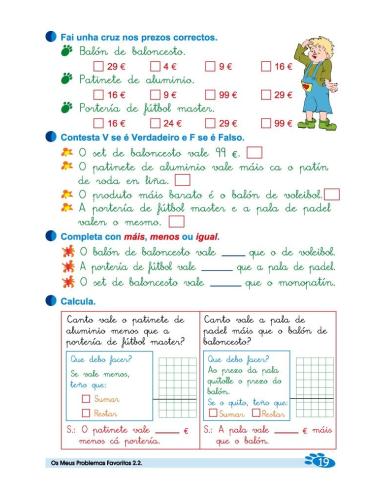 Fai unha cruz nos prezos correctos.
Balón de baloncesto.
29 € 4 € 9 € 16 €
Patinete de aluminio.
16 € 9 € 99 € 29 €
Portería de fútbol master.
16 € 24 € 29 € 99 €
Contesta V se é Verdadeiro e F se é Falso.
O set de baloncesto vale 99 €.
O patinete de aluminio vale máis ca o patín
de roda en liña.
O produto máis barato é o balón de voleibol.
A portería de fútbol master e a pala de padel
valen o mesmo.
Completa con máis, menos ou igual.
O balón de baloncesto vale _____ que o de voleibol.
A portería de fútbol vale _____ que a pala de padel.
O set de baloncesto vale _____ que o monopatín.
Calcula.
Canto vale o patinete de
aluminio menos que a
portería de fútbol master?
Que debo facer?
Se vale menos,
teño que:
Sumar
Restar
S.: O patinete vale _____ €
menos cá portería.
Canto vale a pala de
padel máis que o balón de
baloncesto?
Que debo facer?
Ao prezo da pala
quítolle o prezo do
balón.
Se o quito, teño que:
Sumar Restar
S.: A pala vale _____ € máis
que o balón.
Os Meus Problemas Favoritos 2.2.
19